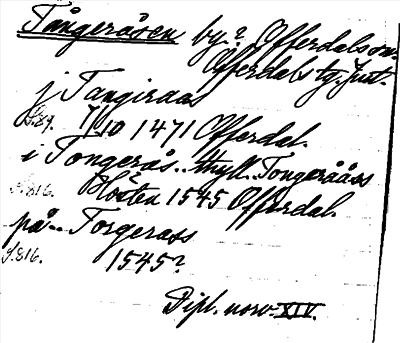 Tångeråsen by? Offerdals sn.
Offerdals tg. Jmt.
j Tangiraas
S.89. 7/10 1471 Offerdal.
i Tongerås.. Mhyll. Tongerååss
S.816. Hösten 1545 Offerdal.
på.. Torgerass
S.816. 1545?
Dipl. norv. XIV.